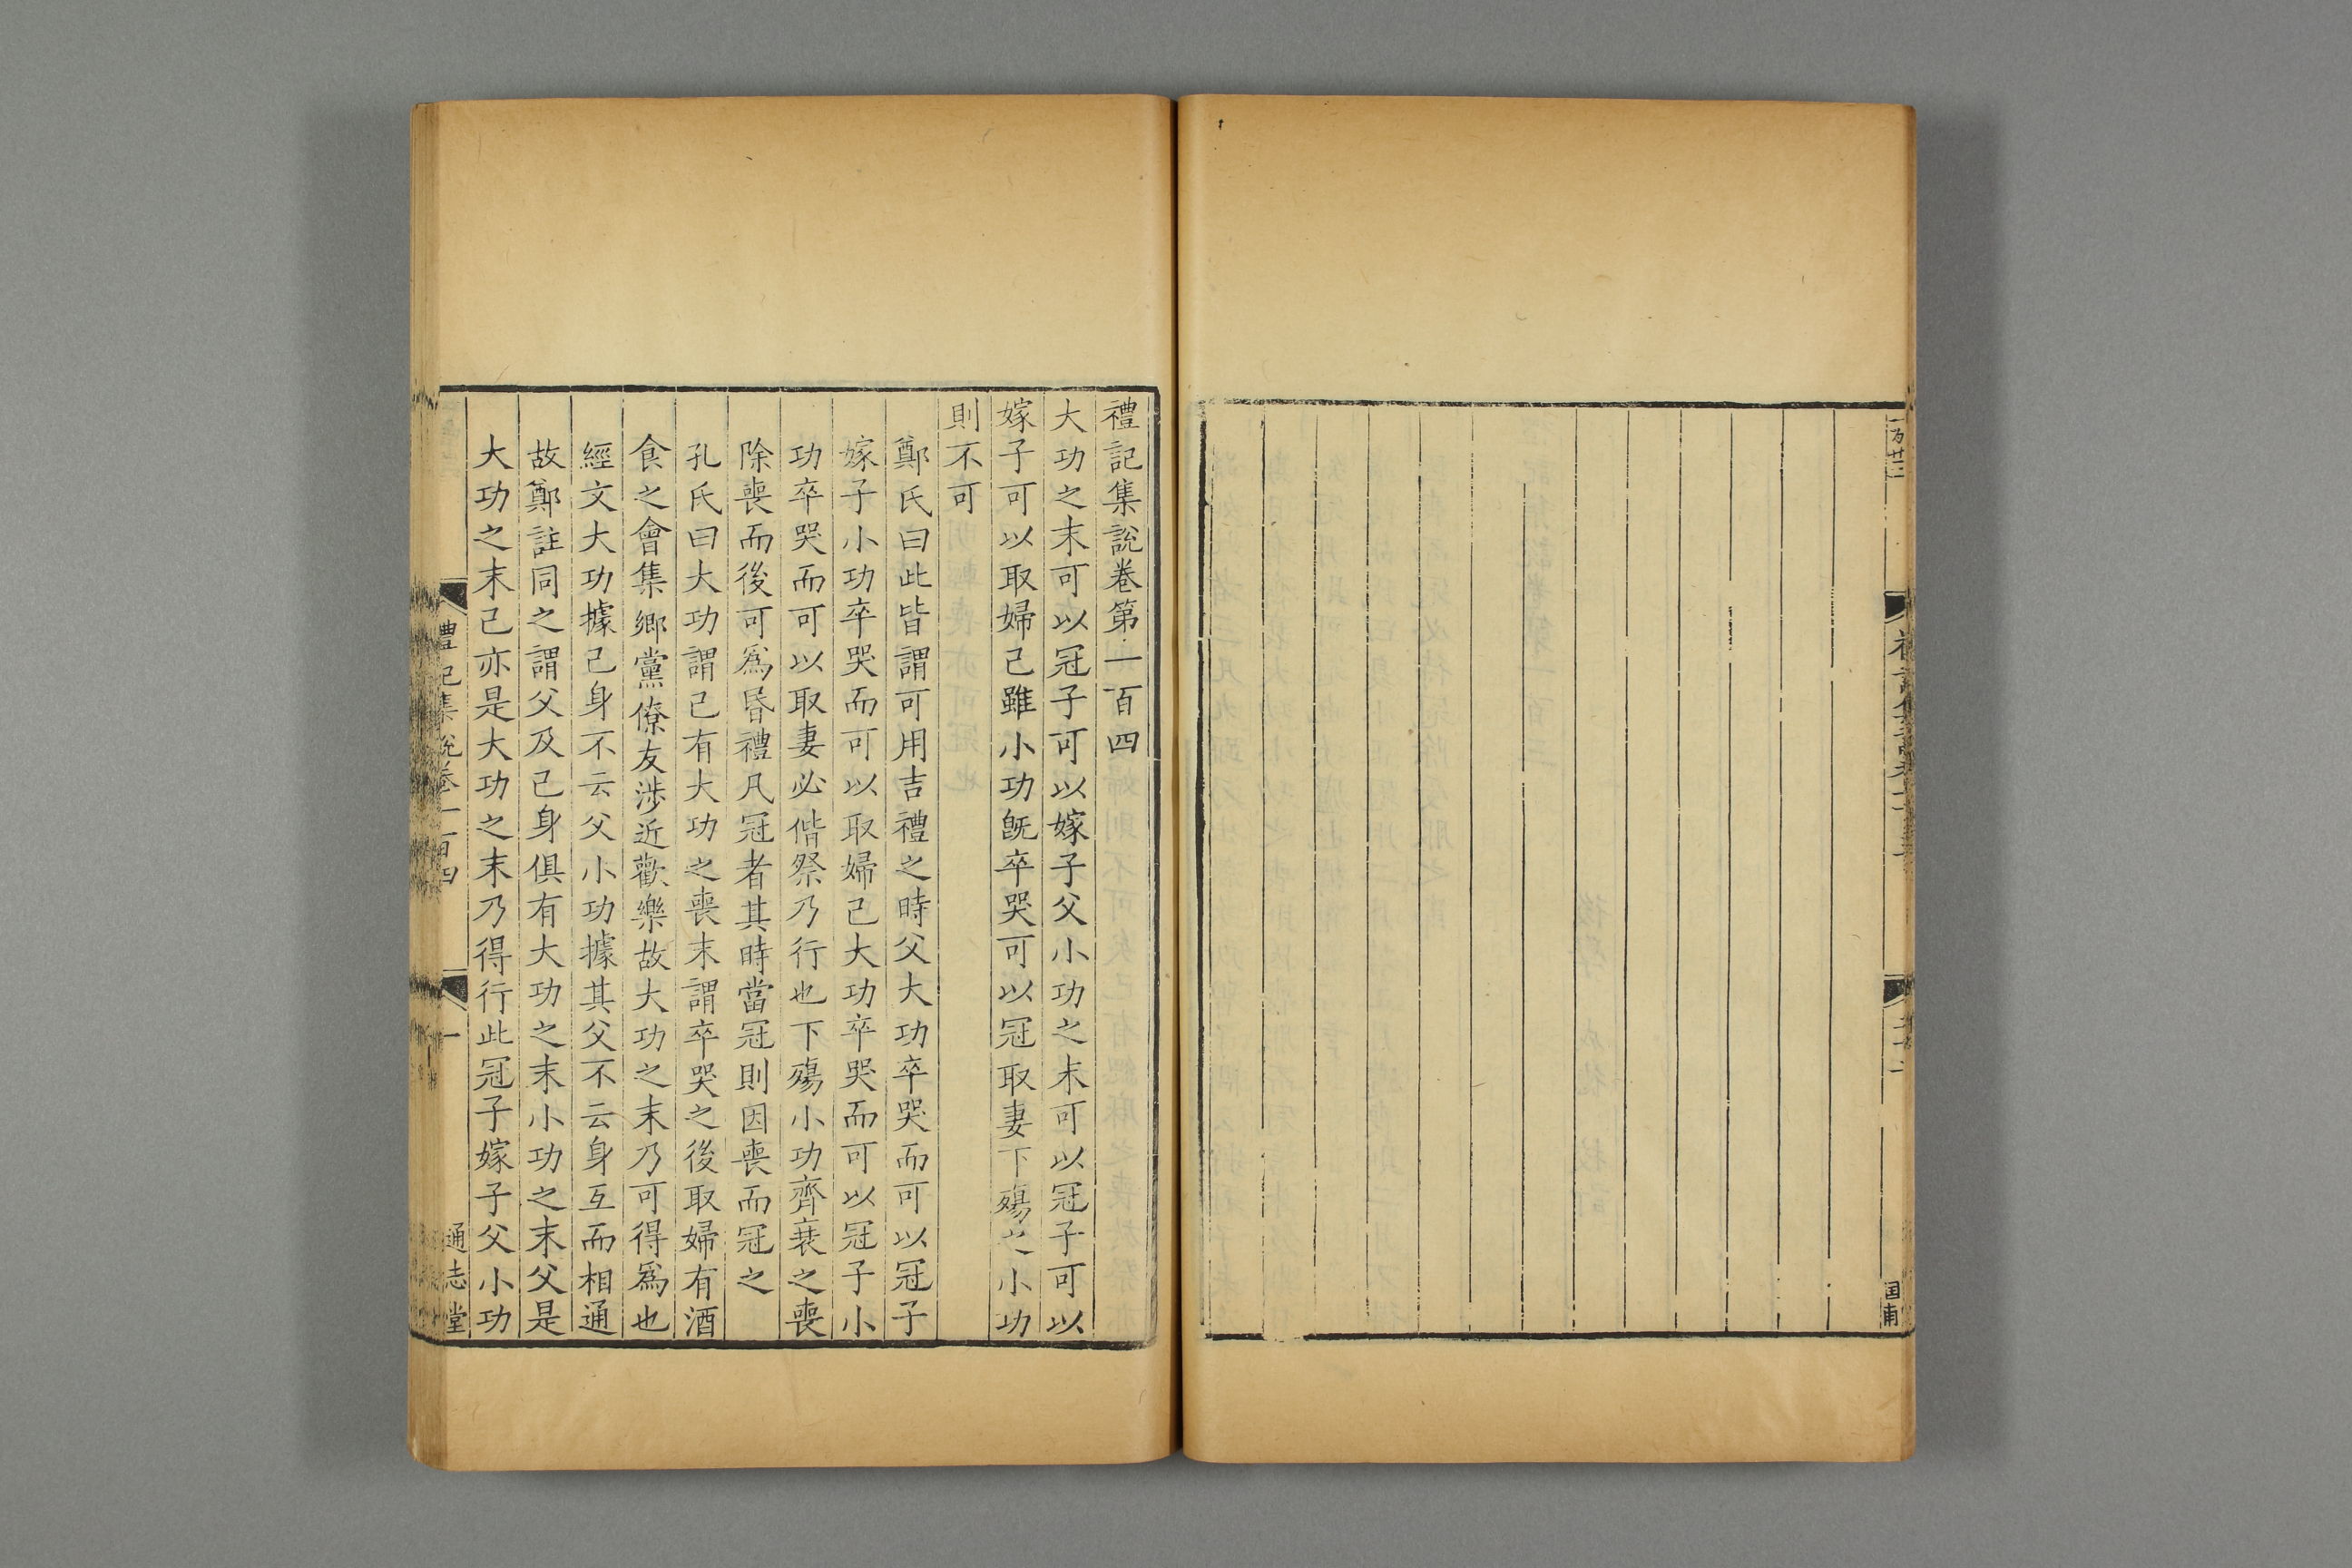 禮記集說卷第一百四
大功之末可以冠子可以嫁子父小功之末可以冠子可以
嫁子可以取婦己雖小功旣卒哭可以冠取妻下殤之小功
則不可
鄭氏曰此皆謂可用吉禮之時父大功卒哭而可以冠子
嫁子小功卒哭而可以取婦己大功卒哭而可以冠子小
功卒哭而可以取妻必偕祭乃行也下殤小功齊衰之喪
除喪而後可爲昬禮凡冠者其時當冠則因喪而冠之
孔氏曰大功謂己有大功之喪末謂卒哭之後取婦有酒
食之會集鄉黨僚友涉近歡樂故大功之末乃可得爲也
經文大功據己身不云父小功據其父不云身互而相通
故鄭註同之謂父及己身俱有大功之末小功之末父是
大功之末己亦是大功之末乃得行此冠子嫁子父小功
禮記集說卷一百四
一
通志堂